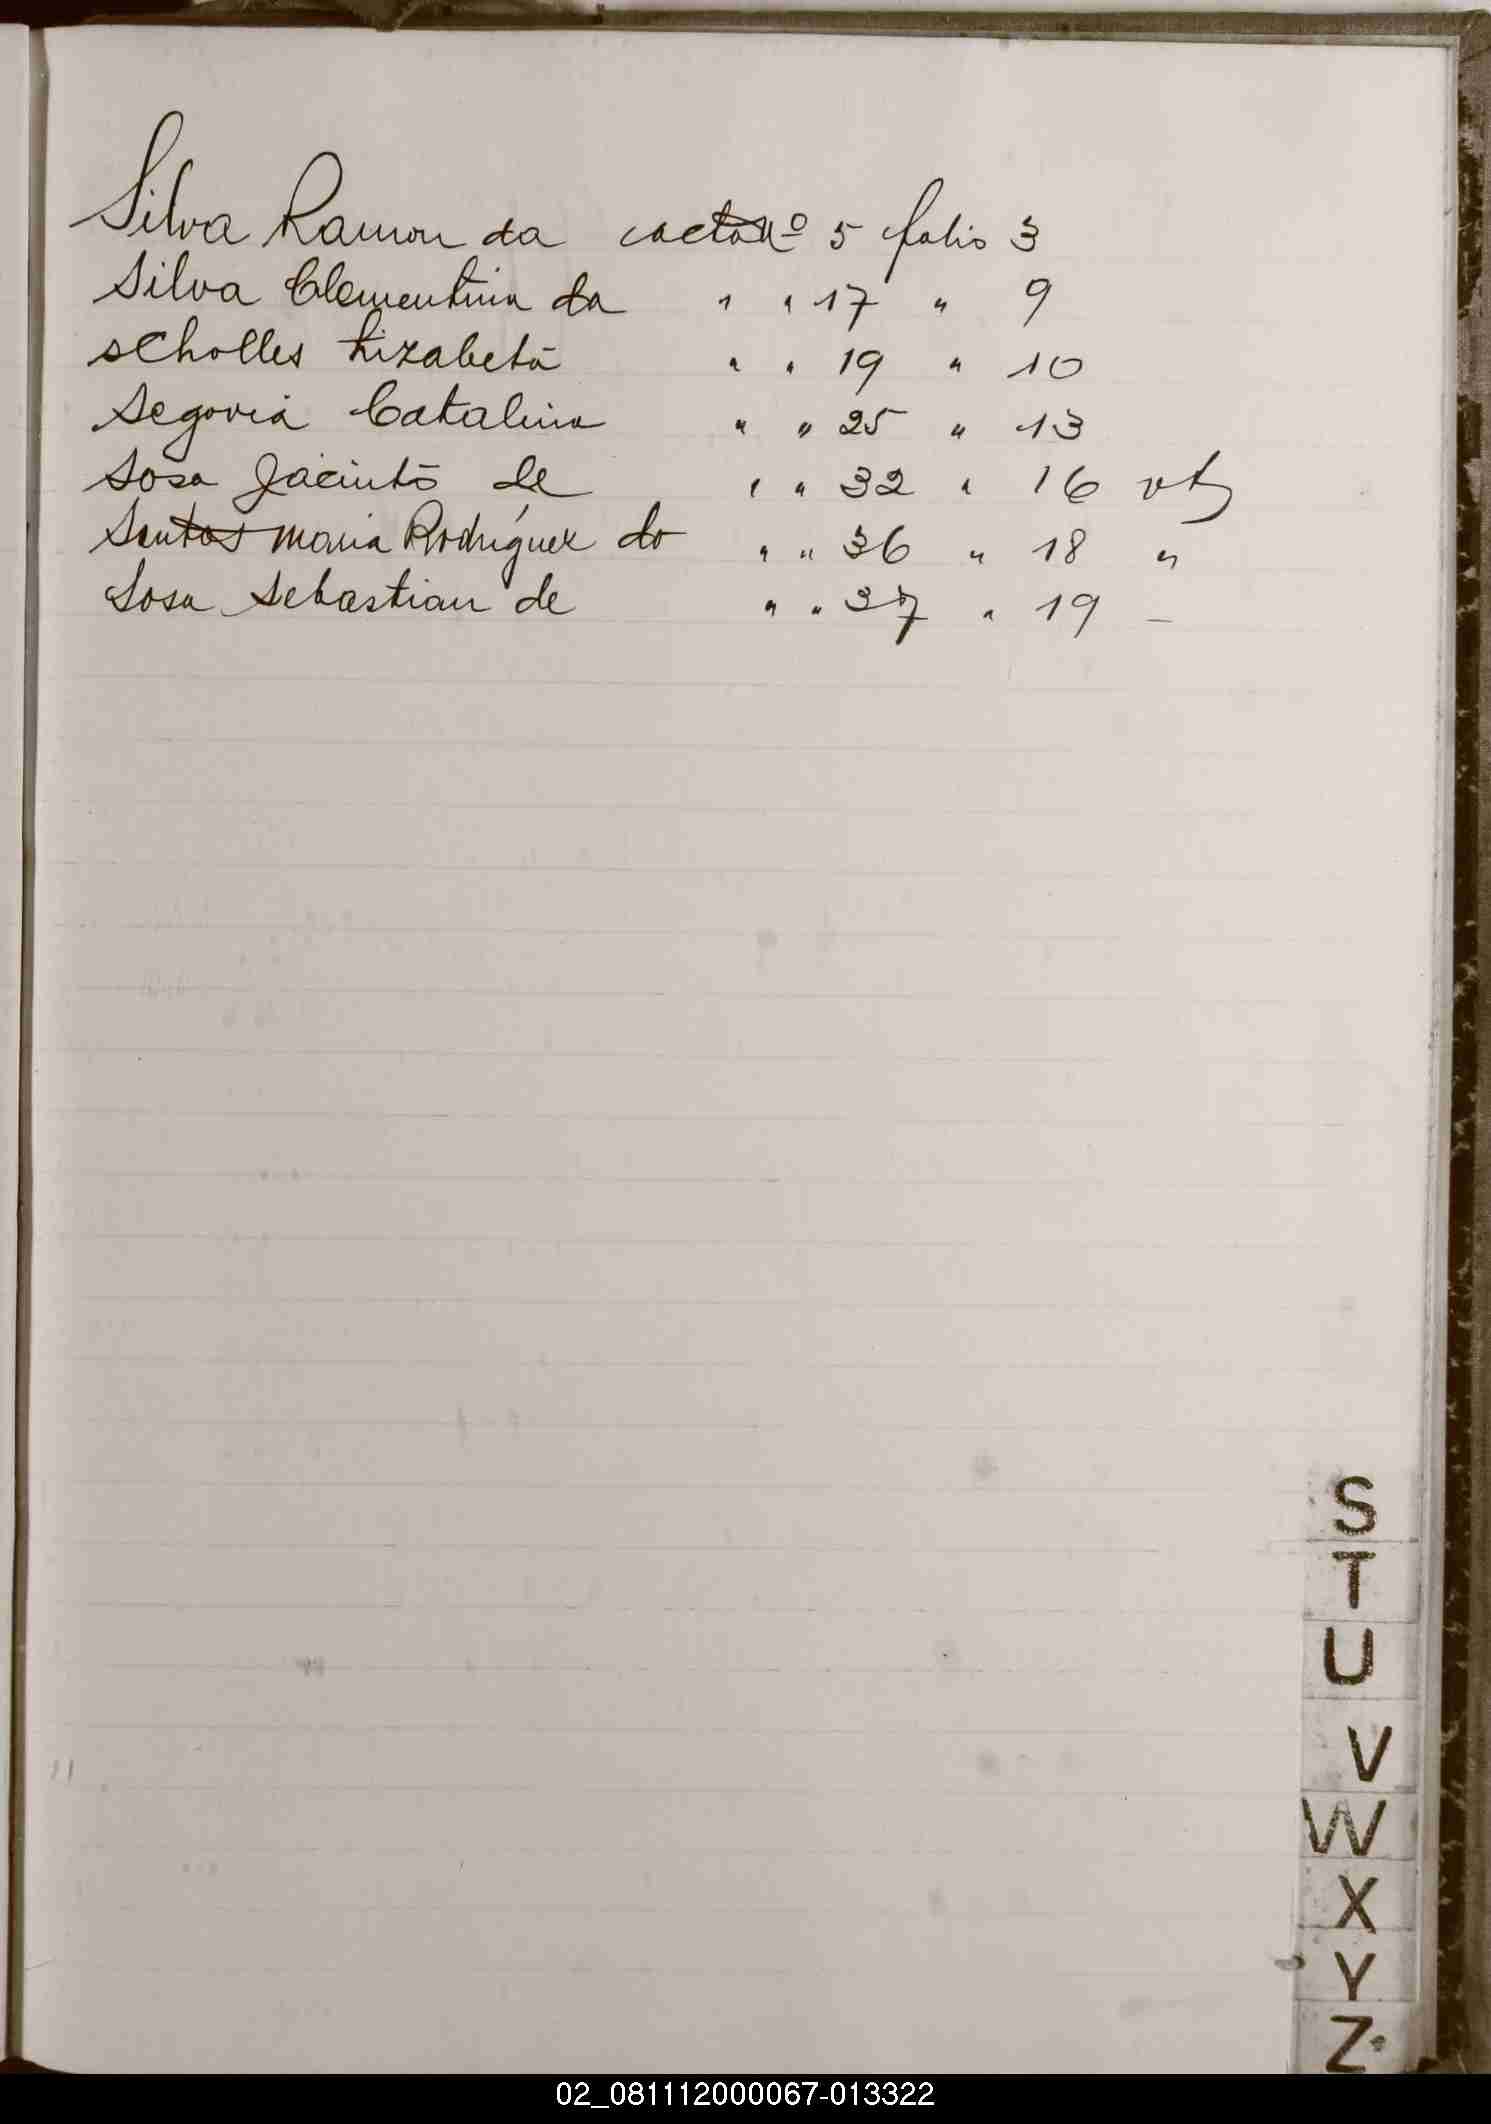 Silva Ramon da acta nº 5 folio 3
Silva Clementina da " " 17 " 9
Scholles Lizabeta " " 19 " 10
Segovia Catalina " " 25 " 13
Sosa Jacinto de " " 32 " 16 vta
Santos Maria Rodríguez do " " 36 " 18 "
Sosa Sebastian de " " 37 " 19 –
S
T
U
V
W
X
Y
Z
02_081112000067-013322